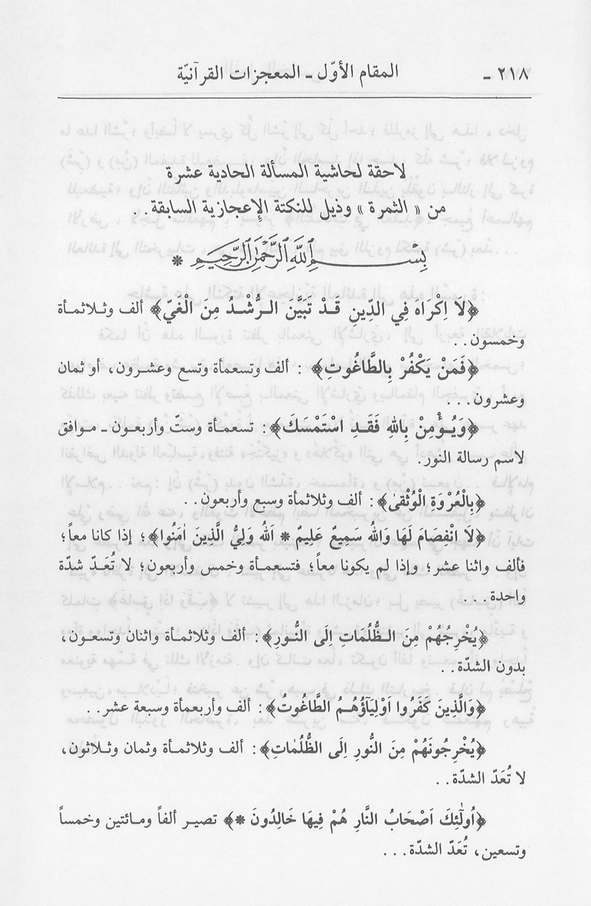 ٢١٨ - المقام الأوّل - المعجزات القرآنيّة
لاحقة لحاشية المسألة الحادية عشرة
من « الثمرة » وذيل للنكتة الإعجازية السابقة..
بِسْمِ اللهِ الرَّحْمٰنِ الرَّحِيمِ *
﴿لَا اِكْرَاهَ فِي الدِّينِ قَدْ تَبَيَّنَ الرُّشْدُ مِنَ الْغَيِّ﴾ ألف وثلاثمأة
وخمسون..
﴿فَمَنْ يَكْفُرْ بِالطَّاغُوتِ﴾ : ألف وتسعمأة وتسع وعشرون، أو ثمان
وعشرون...
﴿وَيُؤْمِنْ بِاللهِ فَقَدِ اسْتَمْسَكَ﴾: تسعمأة وستّ وأربعون - موافق
لاسم رسالة النور.
﴿بِالْعُرْوَةِ الْوُثْقىٰ﴾: ألف وثلاثمأة وسبع وأربعون..
﴿لَا انْفِصَامَ لَهَا وَاللهُ سَمِيعٌ عَلِيمٌ * اَللهُ وَلِيُّ الَّذِينَ اٰمَنُوا﴾؛ إذا كانا معاً؛
فألف واثنا عشر؛ وإذا لم يكونا معاً؛ فتسعمأة وخمس وأربعون؛ لا تُعَدّ شدّة
واحدة...
﴿يُخْرِجُهُمْ مِنَ الظُّلُمَاتِ اِلَى النُّورِ﴾: ألف وثلاثمأة واثنان وتسعون،
بدون الشدّة..
﴿وَالَّذِينَ كَفَرُوا اَوْلِيَاؤُهُمُ الطَّاغُوتُ﴾: ألف وأربعمأة وسبعة عشر..
﴿يُخْرِجُونَهُمْ مِنَ النُّورِ اِلَى الظُّلُمَاتِ﴾: ألف وثلاثمأة وثمان وثلاثون،
لا تُعَدّ الشدّة..
﴿اُولٰئِكَ اَصْحَابُ النَّارِ هُمْ فِيهَا خَالِدُونَ *﴾ تصير ألفاً ومائتين وخمساً
وتسعين، تُعَدّ الشدّة...